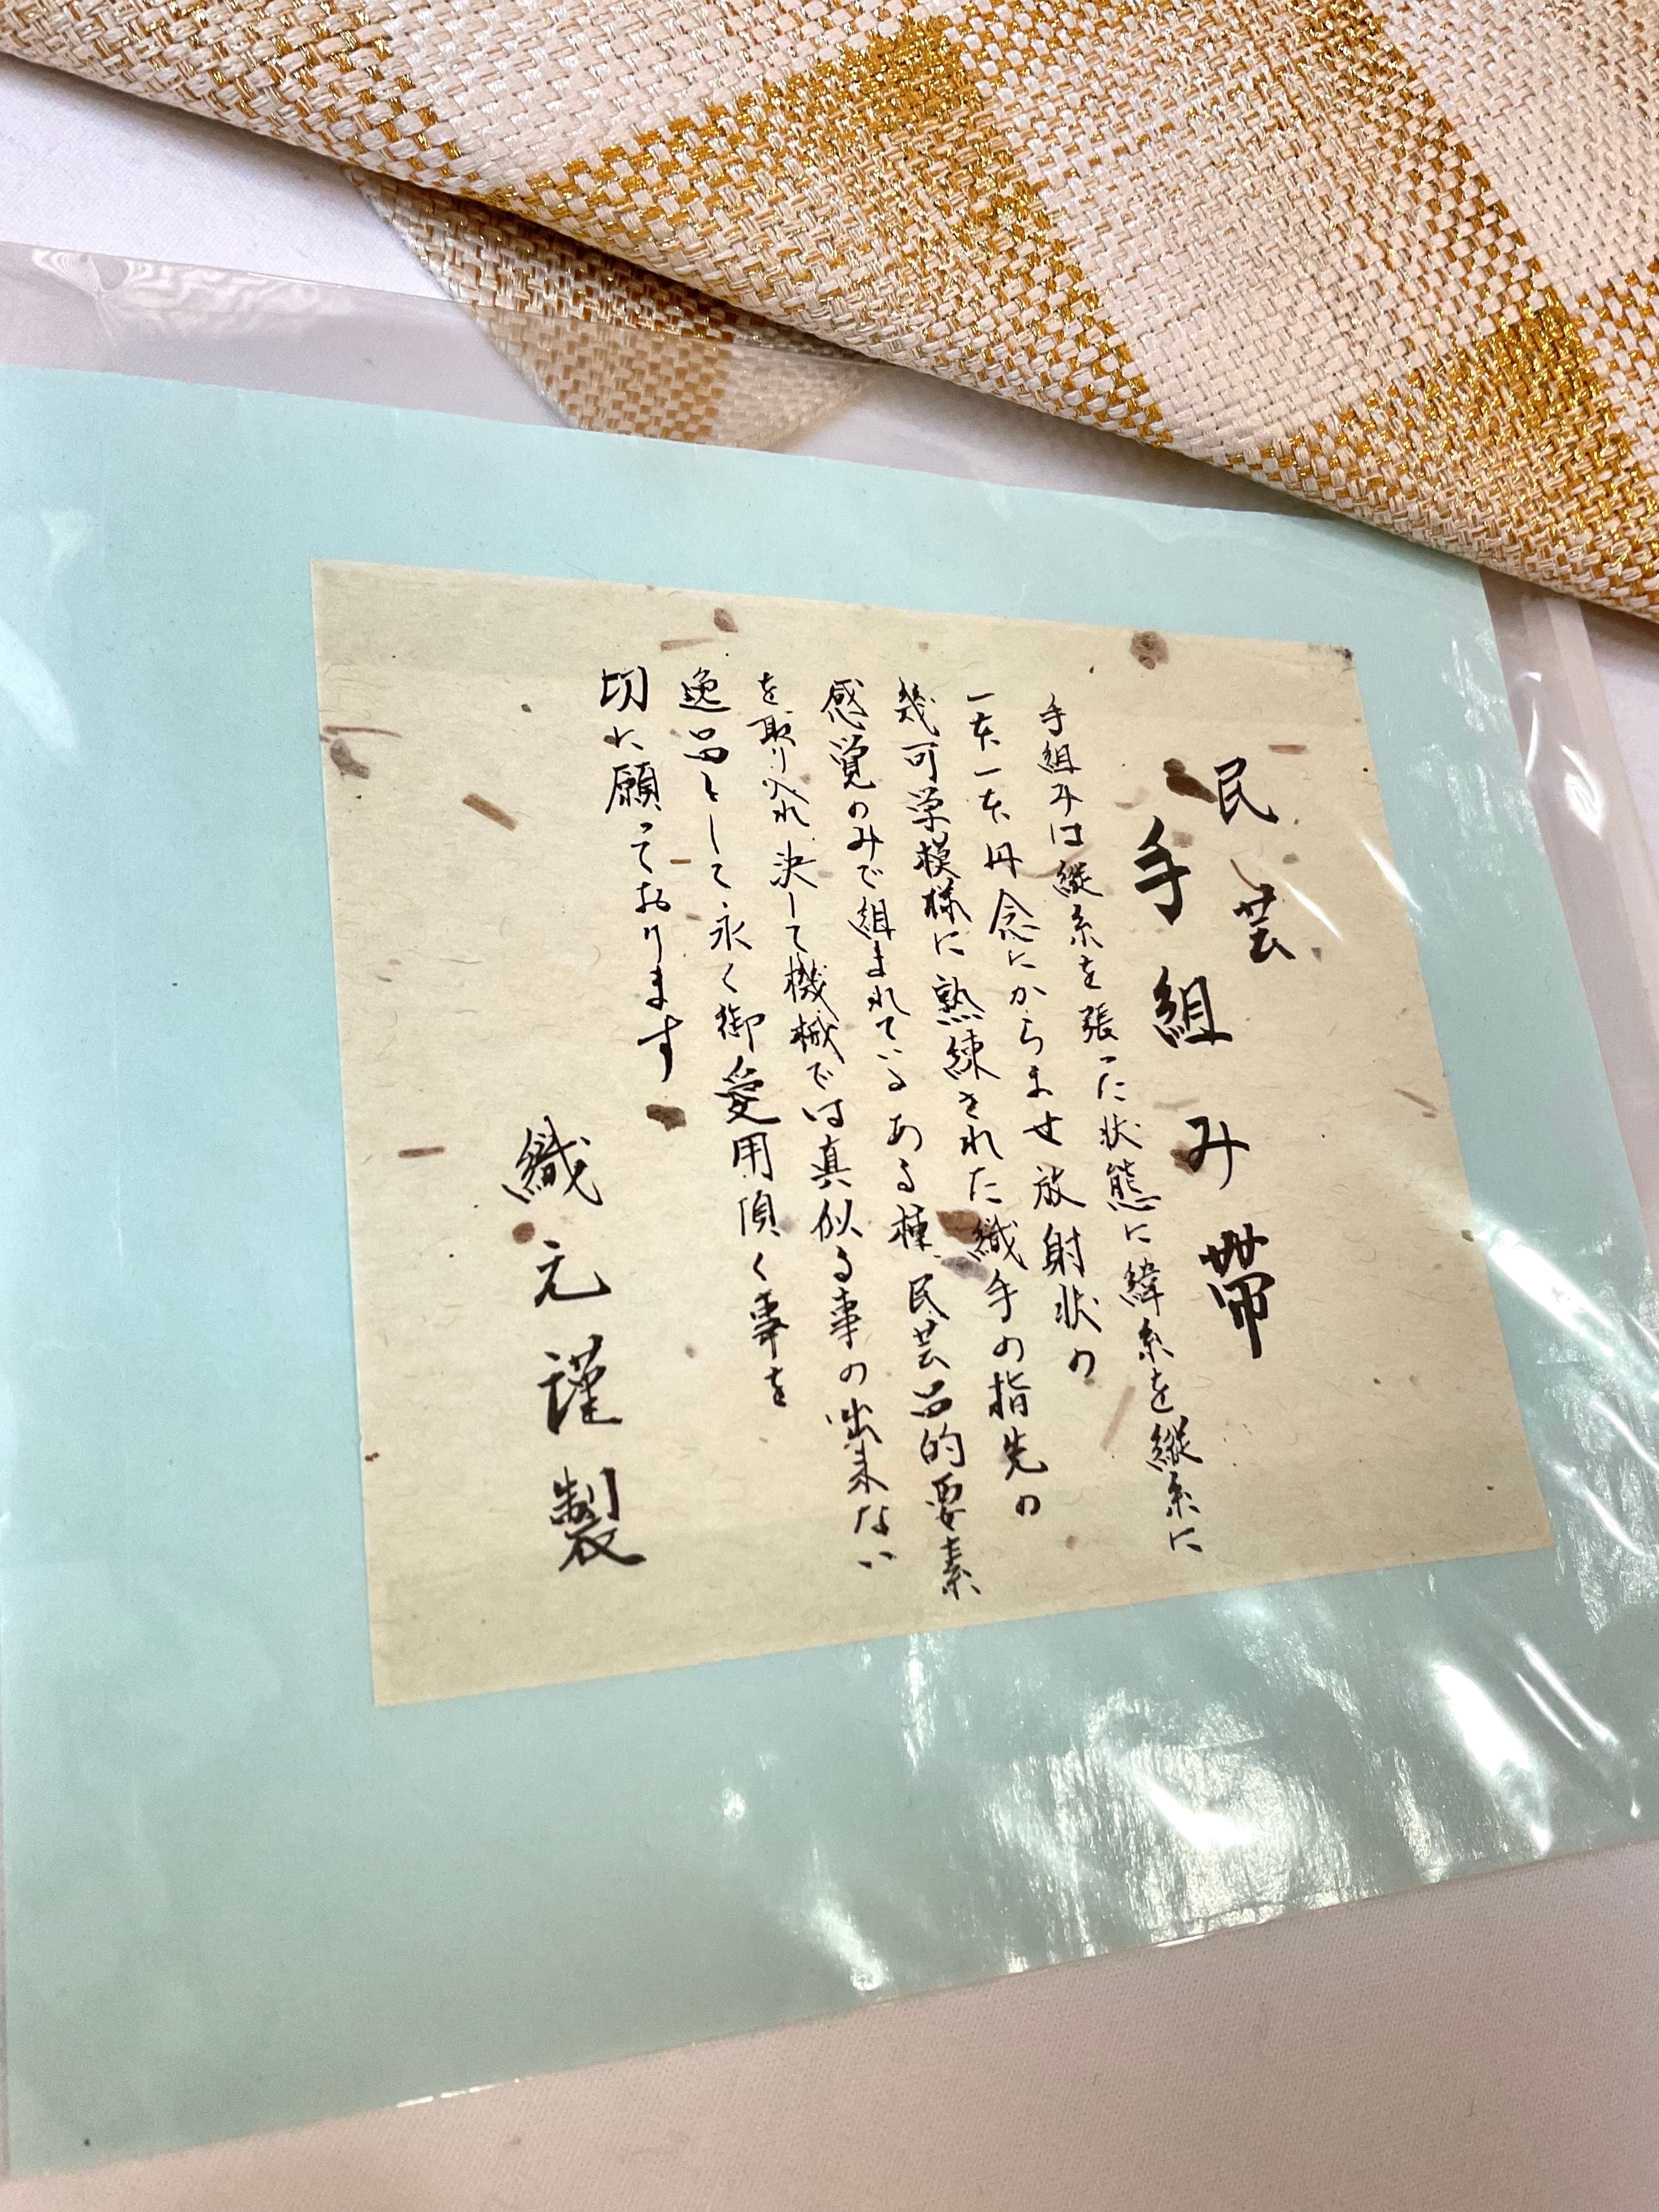 民芸
手組み帯
手組みは縦糸を張った状態に緯糸を縦糸に
一本一本丹念にからませ放射状の
幾可学模様に熟練された織手の指先の
感覚のみで組まれているある種、民芸品的要素
を取り入れ決して機械では真似る事の出来ない
逸品として永く御愛用頂く事を
切に願っております
織元謹製